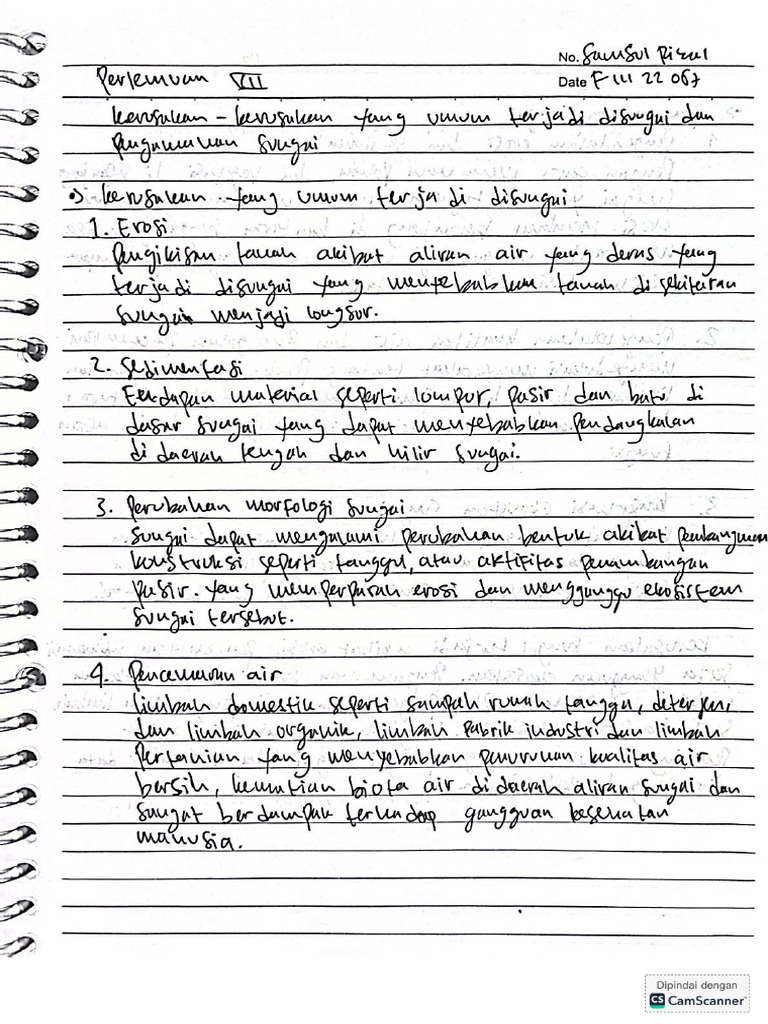 No. Samsul Rizal
Pertemuan VII
Date F 111 22 067
kerusakan - kerusakan yang umum terjadi disungai dan
pengamanan sungai
kerusakan yang umum terjadi disungai
1. Erosi
pengikisan tanah akibat aliran air yang deras yang
terjadi disungai yang menyebabkan tanah disekitaran
sungai menjadi longsor.
2. Sedimentasi
Endapan material seperti lumpur, pasir dan batu di
dasar sungai yang dapat menyebabkan pendangkalan
didaerah tengah dan hilir sungai.
3. Perubahan morfologi sungai
sungai dapat mengalami perubahan bentuk akibat pembangunan
konstruksi seperti tanggul, atau aktifitas penambangan
pasir. yang memperparah erosi dan mengganggu ekosistem
sungai tersebut.
4. Pencemaran air
limbah domestik seperti sampah rumah tangga, deterjen,
dan limbah organik, limbah pabrik industri dan limbah
pertanian yang menyebabkan penurunan kualitas air
bersih, kematian biota air di daerah aliran sungai dan
sangat berdampak terhadap gangguan kesehatan
manusia.
Dipindai dengan
CS CamScanner